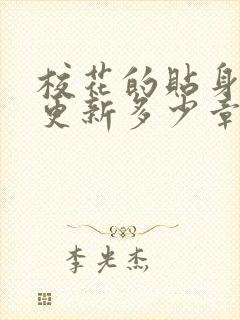 校花的貼身
更新多少章
李光杰